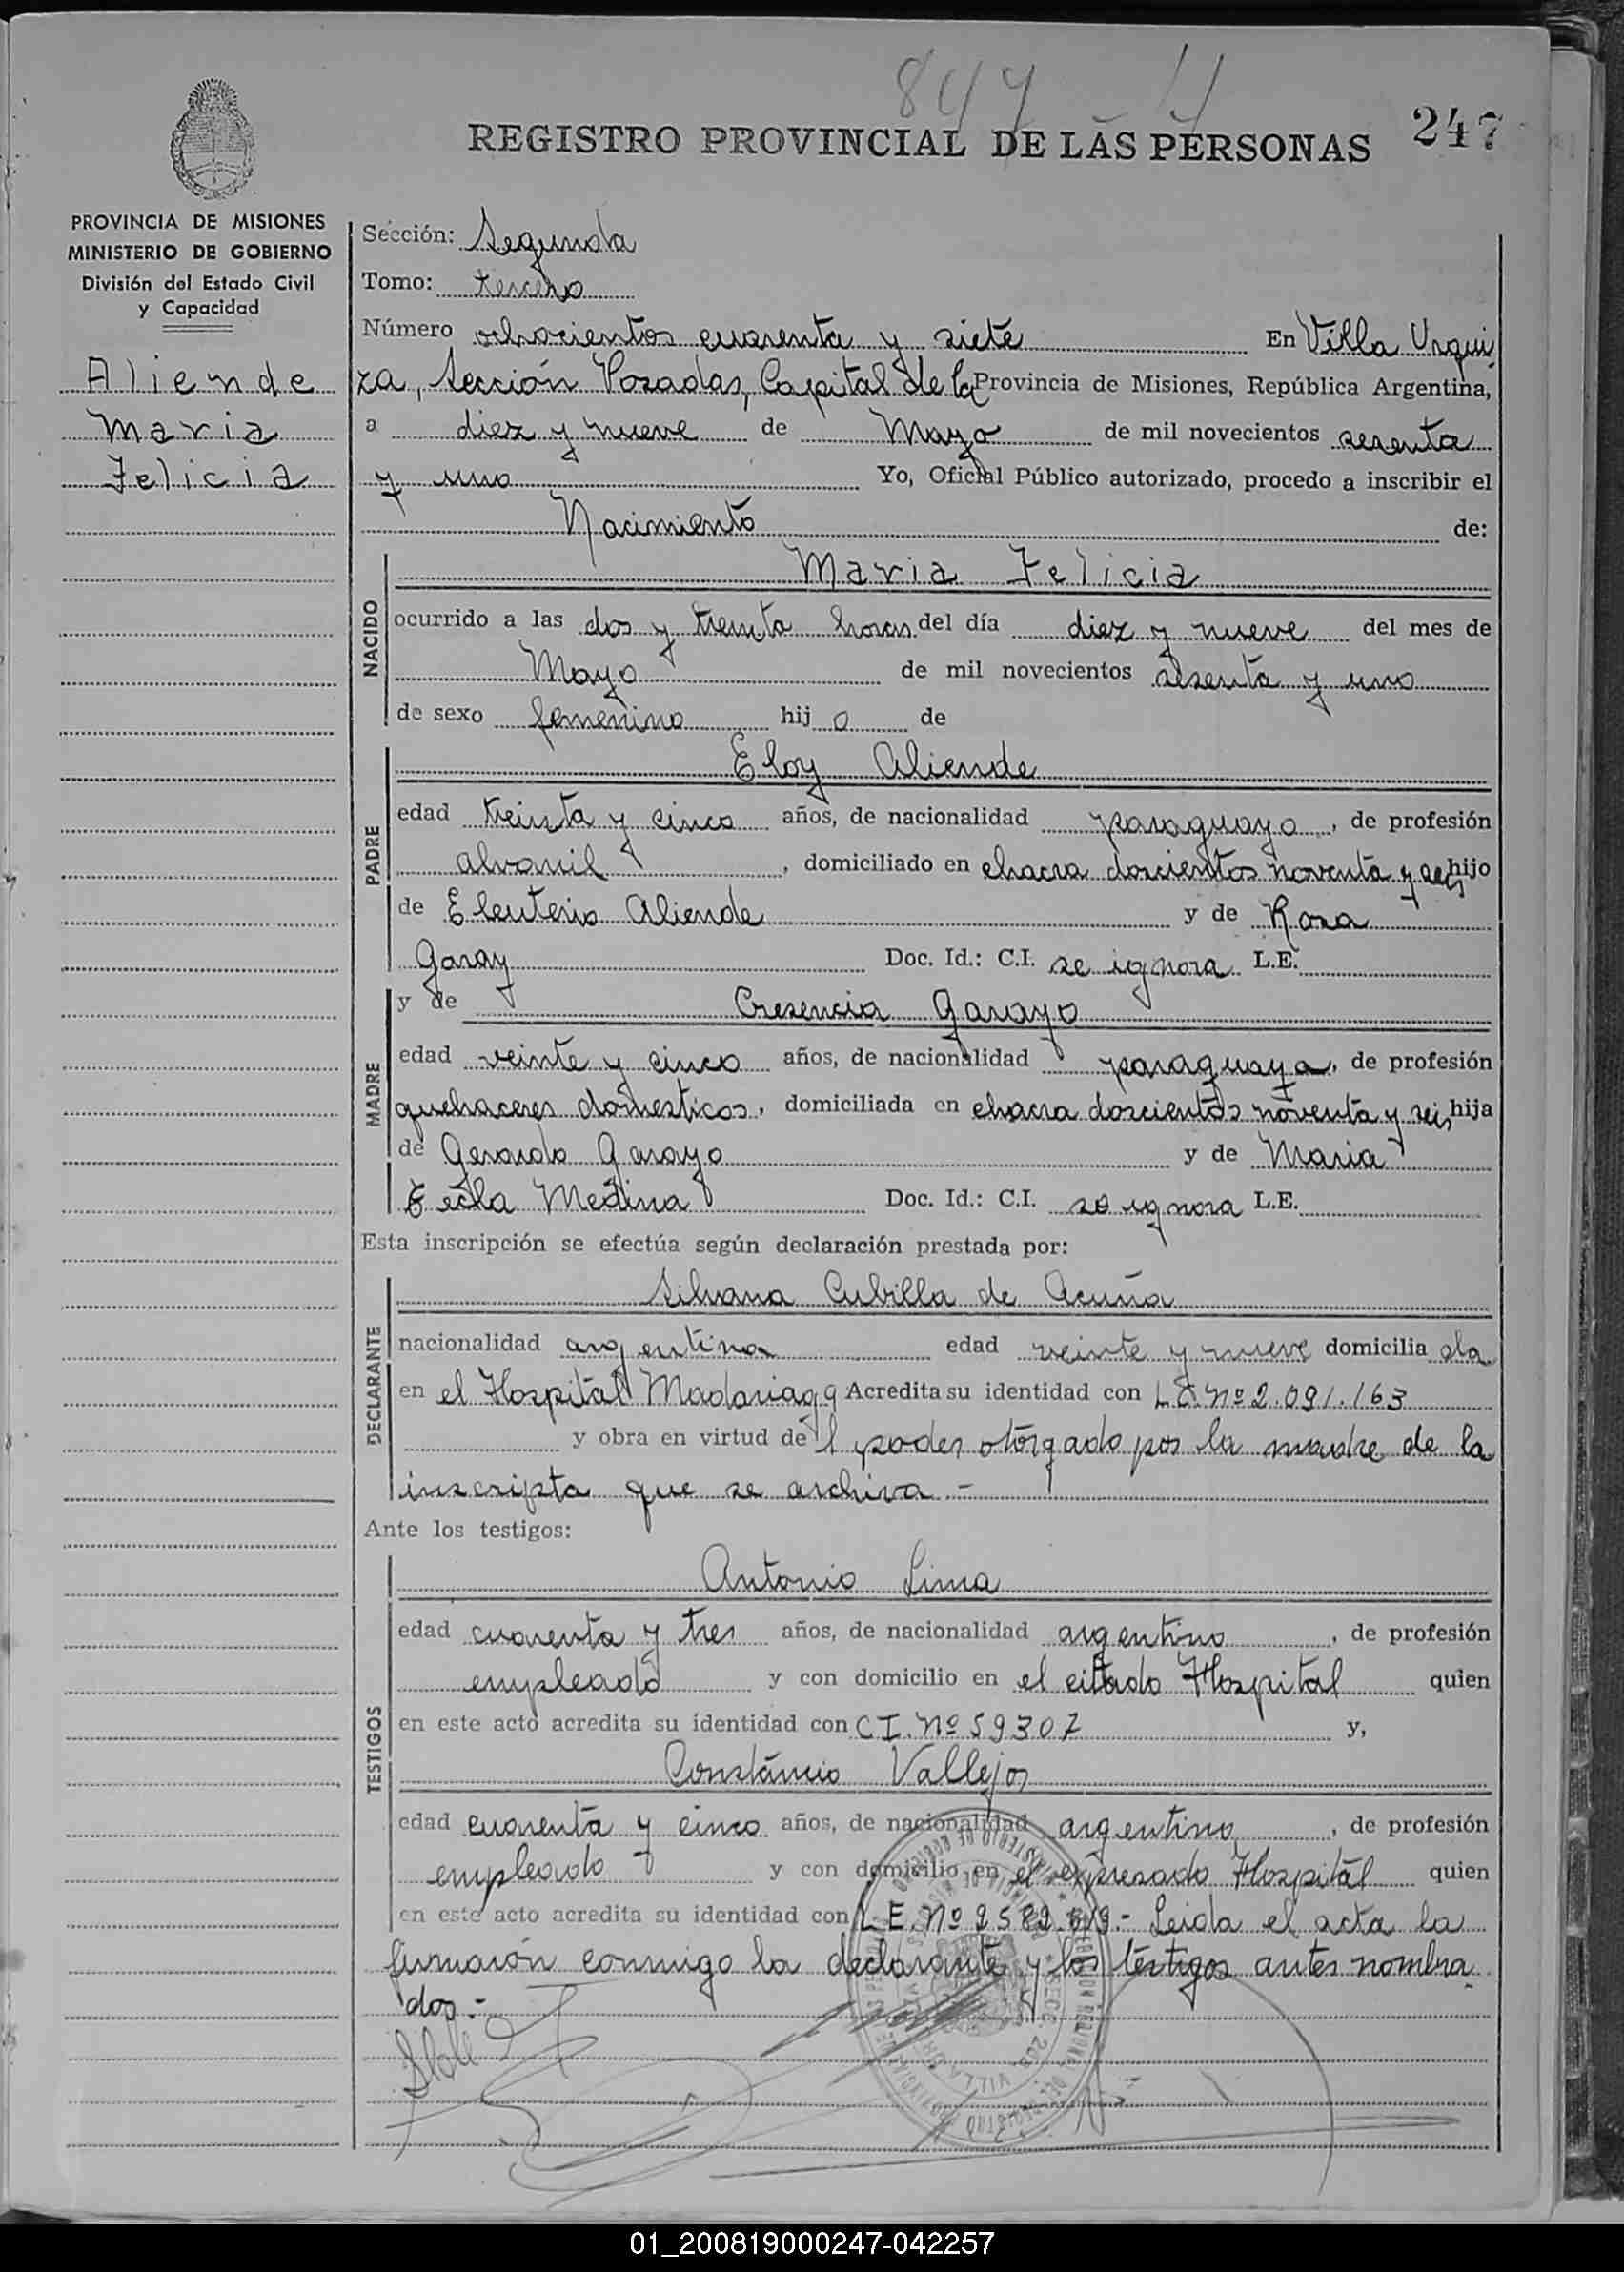 847
247
REGISTRO PROVINCIAL DE LAS PERSONAS
PROVINCIA DE MISIONES
MINISTERIO DE GOBIERNO
División del Estado Civil
y Capacidad
Aliende
Maria
Felicia
Sección: Segunda
Tomo: tercero
Número ochocientos cuarenta y siete En Villa Urqui
za, Sección Posadas, Capital de la Provincia de Misiones, República Argentina,
a diez y nueve de Mayo de mil novecientos sesenta
y uno Yo, Oficial Público autorizado, procedo a inscribir el
Nacimiento de:
NACIDO
Maria Felicia
ocurrido a las dos y treinta horas del día diez y nueve del mes de
Mayo de mil novecientos sesenta y uno
de sexo femenino hij a de
PADRE
Eloy Aliende
edad treinta y cinco años, de nacionalidad paraguayo, de profesión
alvanil, domiciliado en chacra doscientos noventa y seis hijo
de Eleuterio Aliende y de Rosa
Garay Doc. Id.: C.I. se ignora L.E.
MADRE
y de Cresencia Garayo
edad veinte y cinco años, de nacionalidad paraguaya, de profesión
quehaceres domesticos, domiciliada en chacra doscientos noventa y seis hija
de Gerardo Garayo y de Maria
Tecla Medina Doc. Id.: C.I. se ignora L.E.
Esta inscripción se efectúa según declaración prestada por:
DECLARANTE
Silvana Cubilla de Acuña
nacionalidad argentina edad veinte y nueve domicilia da
en el Hospital Madariaga Acredita su identidad con L.C. Nº 2.091.163
y obra en virtud de l poder otorgado por la madre de la
inscripta que se archiva.-
Ante los testigos:
TESTIGOS
Antonio Lima
edad cuarenta y tres años, de nacionalidad argentino, de profesión
empleado y con domicilio en el citado Hospital quien
en este acto acredita su identidad con C I. Nº 59307 y,
Constancio Vallejos
edad cuarenta y cinco años, de nacionalidad argentino, de profesión
empleado y con domicilio en el expresado Hospital quien
en este acto acredita su identidad con L.E. Nº Leida el acta la
firmarón conmigo la declarante y los testigos antes nombra
dos.-
01_200819000247-042257